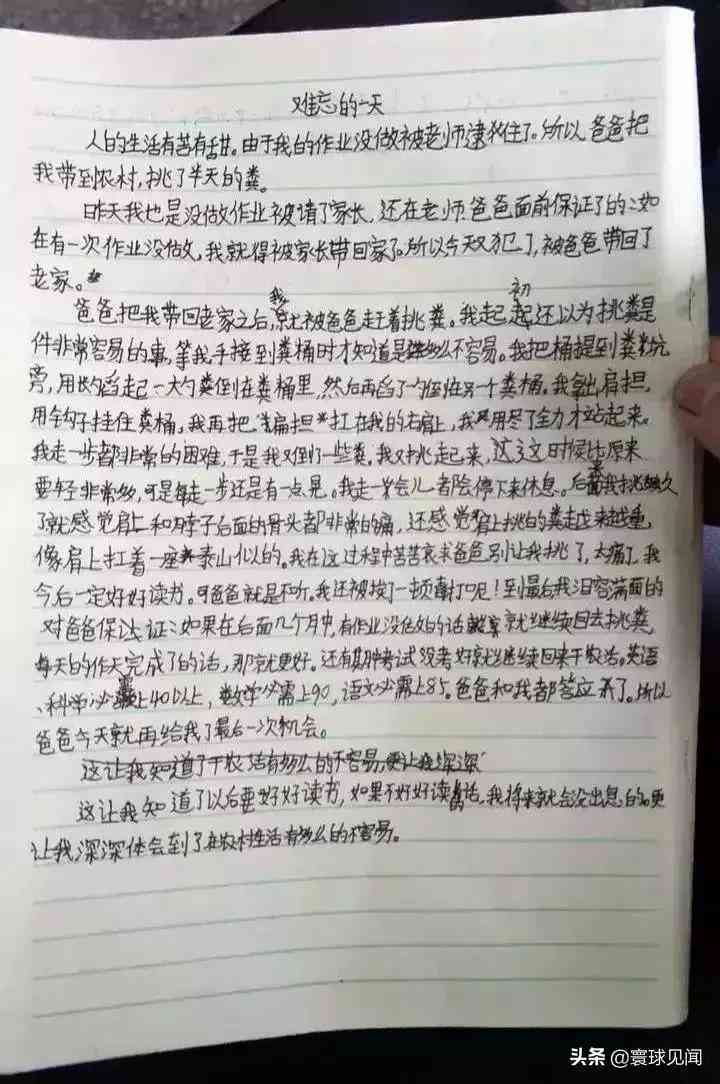 难忘的一天
人的生活有苦有甜。由于我的作业没做被老师逮住了。所以爸爸把
我带到农村，挑了半天的粪。
昨天我也是没做作业被请了家长，还在老师爸爸面前保证了的：如
在有一次作业没做，我就得被家长带回家了。所以今天又犯了，被爸爸带回了
老家。
爸爸把我带回老家之后，我就被爸爸赶着挑粪。我起初还以为挑粪是
件非常容易的事，等我手接到粪桶时才知道是多么不容易。我把桶提到粪坑
旁，用大勺舀起一大勺粪倒在粪桶里，然后再舀了一勺倒在另一个粪桶。我拿出肩担，
用钩子挂住粪桶。我再把扁担扛在我的右肩上，我用尽了全力才站起来。
我走一步都非常的困难，于是我又倒了一些粪。我又挑起来，这时候比原来
要轻非常多，可是每走一步还是有一点晃。我走一会儿都会停下来休息。后我挑久
了就感觉肩上和脖子后面的骨头都非常的痛，还感觉肩上挑的粪越来越重，
像肩上扛着一座泰山似的。我在这过程中苦苦哀求爸爸别让我挑了，太痛了，我
今后一定好好读书。可爸爸就是不听。我还被挨了一顿毒打呢！到最后我泪容满面的
对爸爸保证：如果在后面几个月中，有作业没做的话就继续回去挑粪，
每天的作天完成了的话，那就更好。还有期中考试没考好就继续回来干农活。英语
、科学必需上40以上，数学必需上90，语文必需上85。爸爸和我都答应了。所以
爸爸今天就再给我了最后一次机会。
这让我知道了干农活有多么的不容易，更让我深深
这让我知道了以后要好好读书，如果不好好读书的话，我将来就会没出息的。更
让我深深体会到了在农村生活有多么的不容易。
头条 @寰球见闻